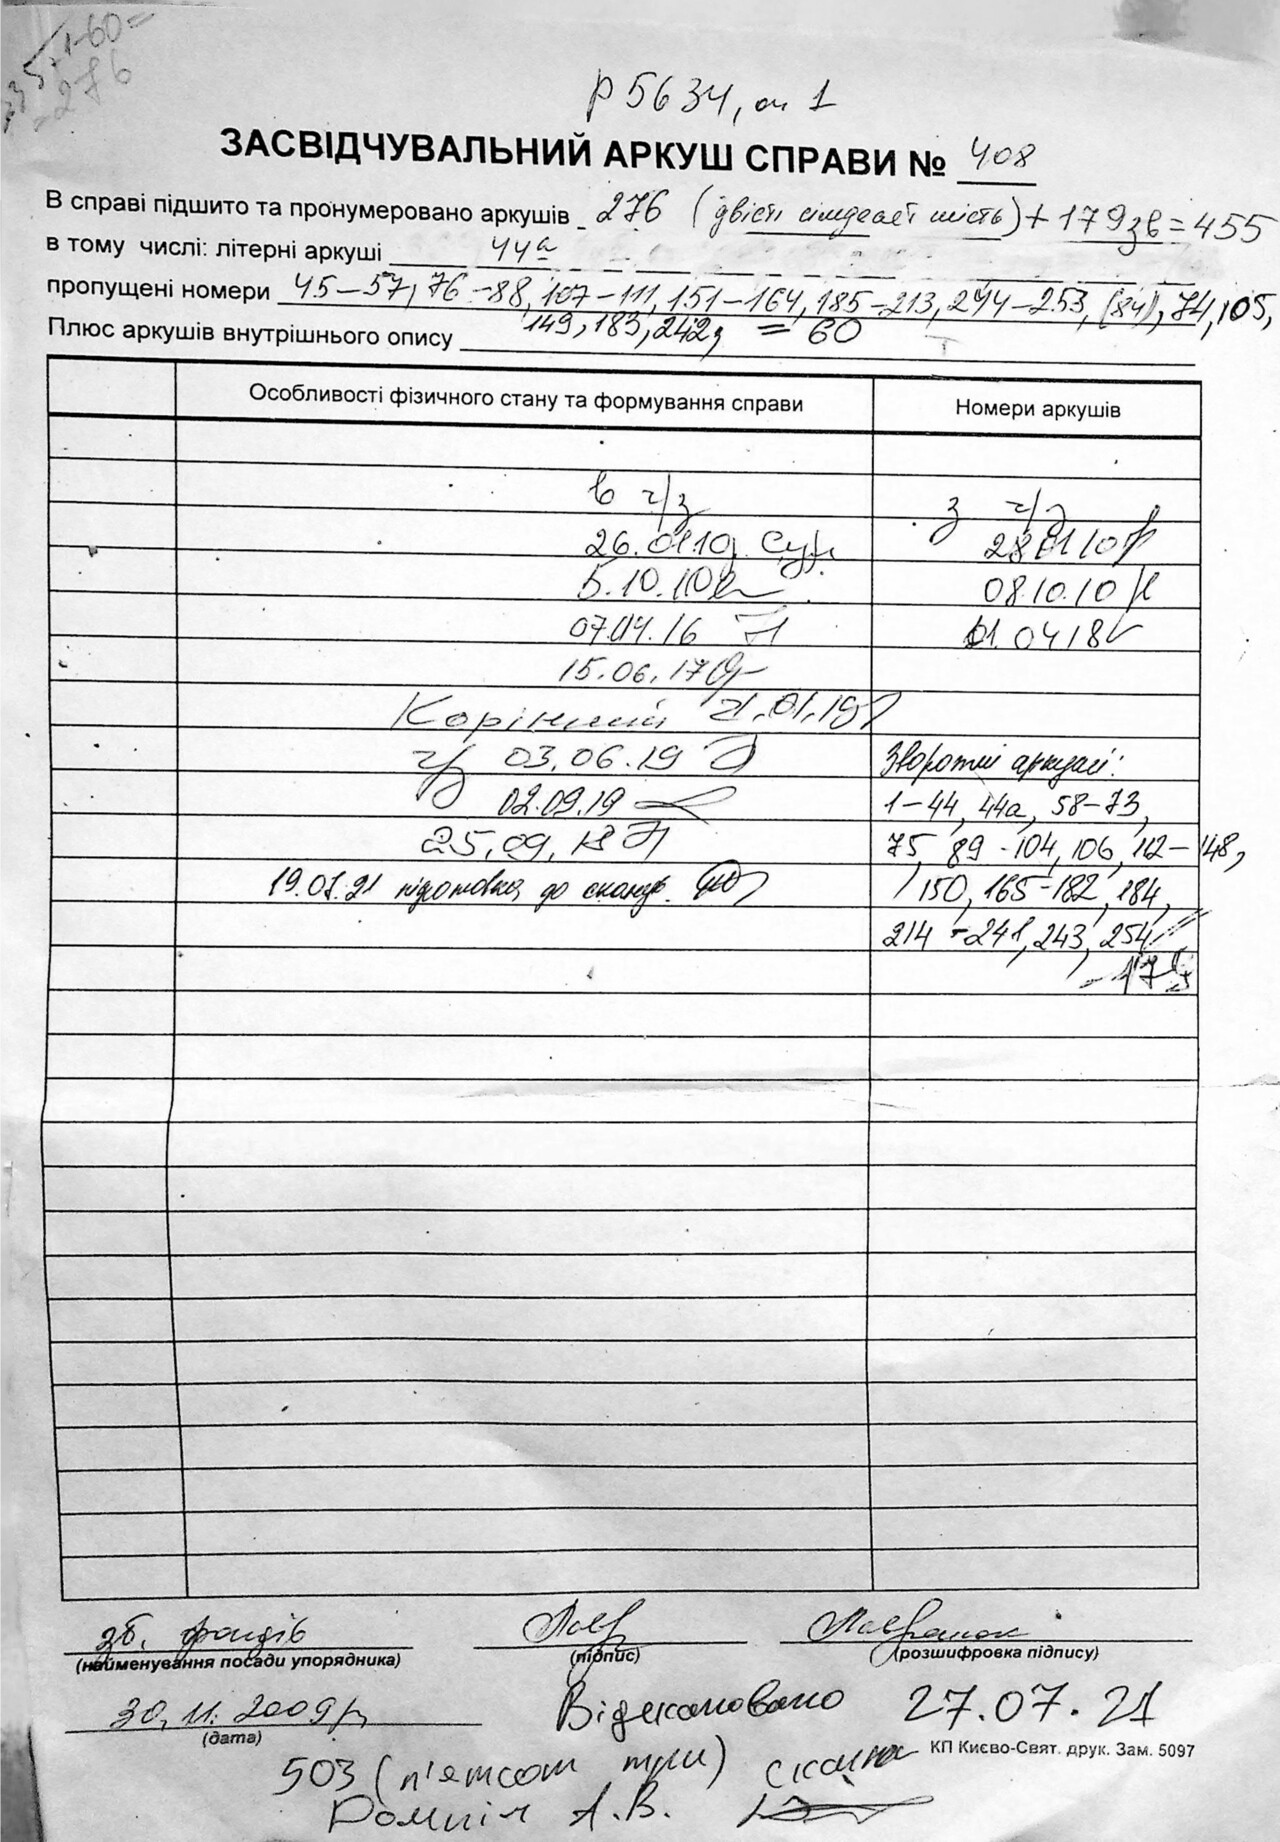 335+1-60=
=276
Р 5634, оп 1
ЗАСВІДЧУВАЛЬНИЙ АРКУШ СПРАВИ № 408
В справі підшито та пронумеровано аркушів 276 (двісті сімдесят шість) + 179 зв = 455
в тому числі: літерні аркуші 44а
пропущені номери 45–57, 76–88, 107–111, 151–164, 185–213, 244–253, (84), 74, 105,
149, 183, 242, = 60
Плюс аркушів внутрішнього опису
Особливості фізичного стану та формування справи Номери аркушів
в ч/з з ч/з
26.01.10 28.01.10
5.10.10 08.10.10
07.04.16 01.04.18
15.06.17
21.01.19
ч/з 03.06.19 Зворотні аркуші:
02.09.19 1–44, 44а, 58–73,
25.09.19 75, 89-104, 106, 112–148,
19.07.21 підготовка до сканув. 150, 165-182, 184,
214-241, 243, 254
179
зб. фондів
(найменування посади упорядника) (підпис) (розшифровка підпису)
30.11.2009р.
(дата)
Відскановано 27.07.21
КП Києво-Свят. друк. Зам. 5097
503 (п'ятсот три) скани
А.В.